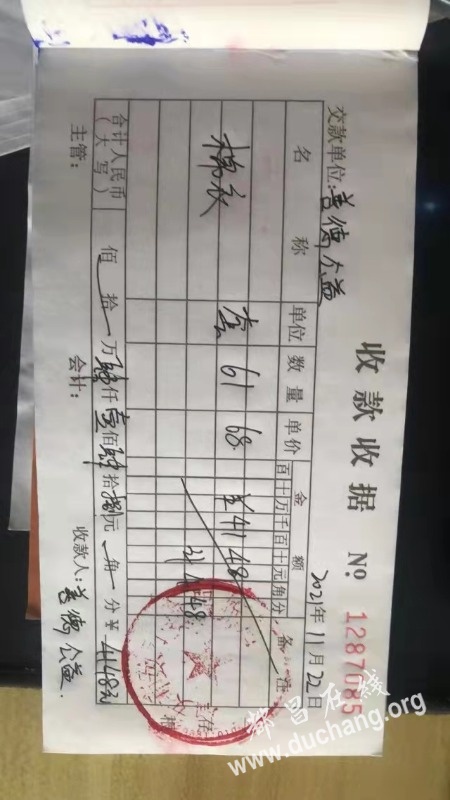 收款收据 № 1287085
交款单位:善德公益 2021年11月22日
名称 单位 数量 单价 金额 备注
百十万千百十元角分
棉衣 套 61 68 ¥4148
4148
合计人民币(大写) 佰 拾 万 肆仟 壹佰 肆拾 捌元 角 分 ¥ 4148
主管: 会计: 收款人:善德公益
都昌在线
www.duchang.org